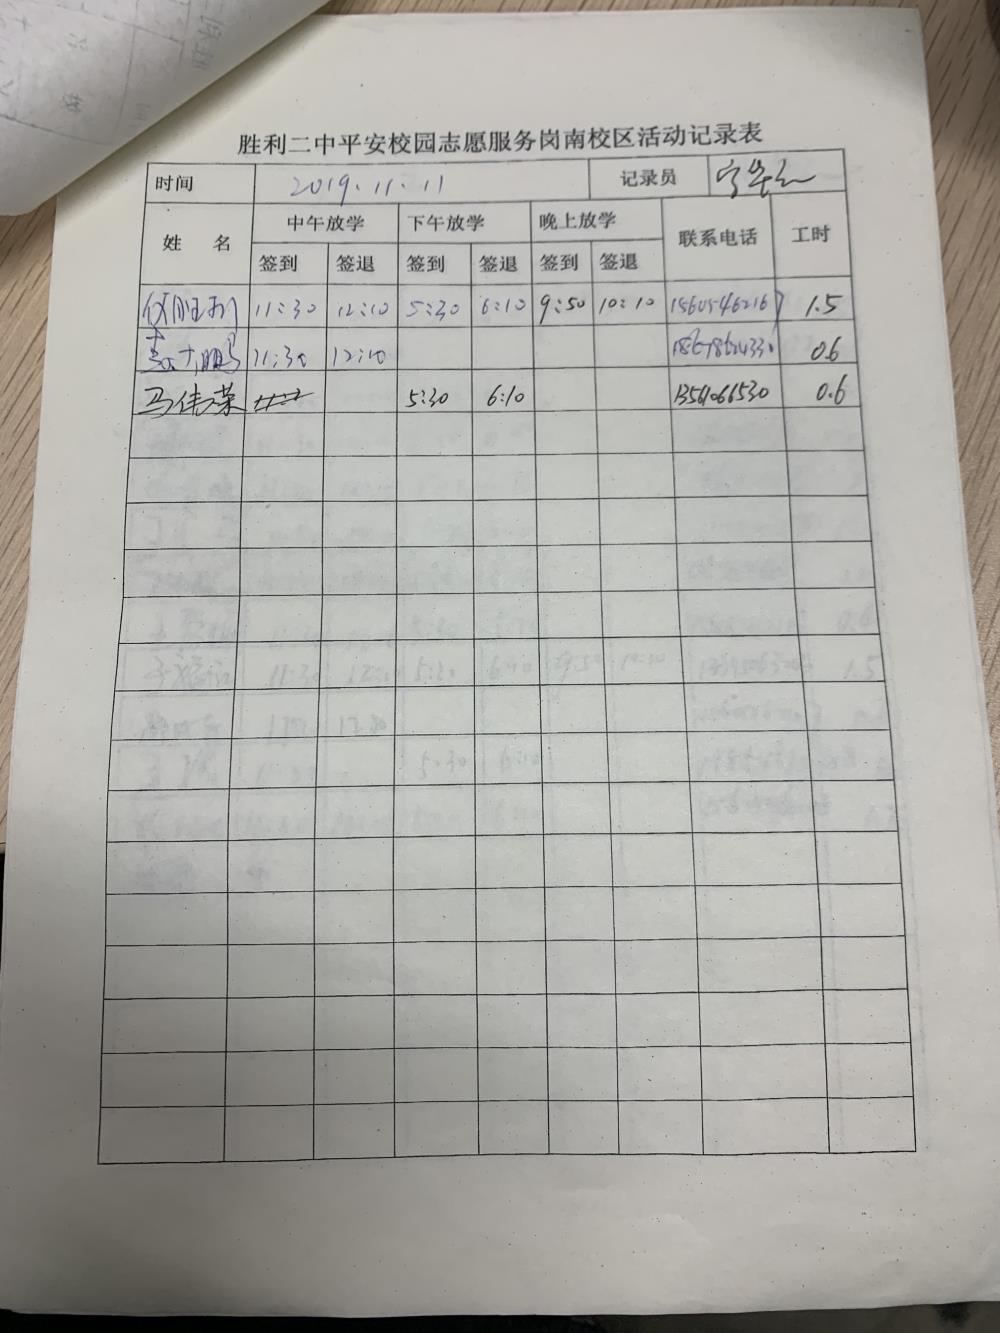 胜利二中平安校园志愿服务岗南校区活动记录表
时间 2019.11.11 记录员
姓 名 中午放学 下午放学 晚上放学 联系电话 工时
签到 签退 签到 签退 签到 签退
胜利 11:30 12:10 5:30 6:10 9:50 10:10 15605462167 1.5
鹏 11:30 12:10 0.6
马伟荣 5:30 6:10 13561066530 0.6